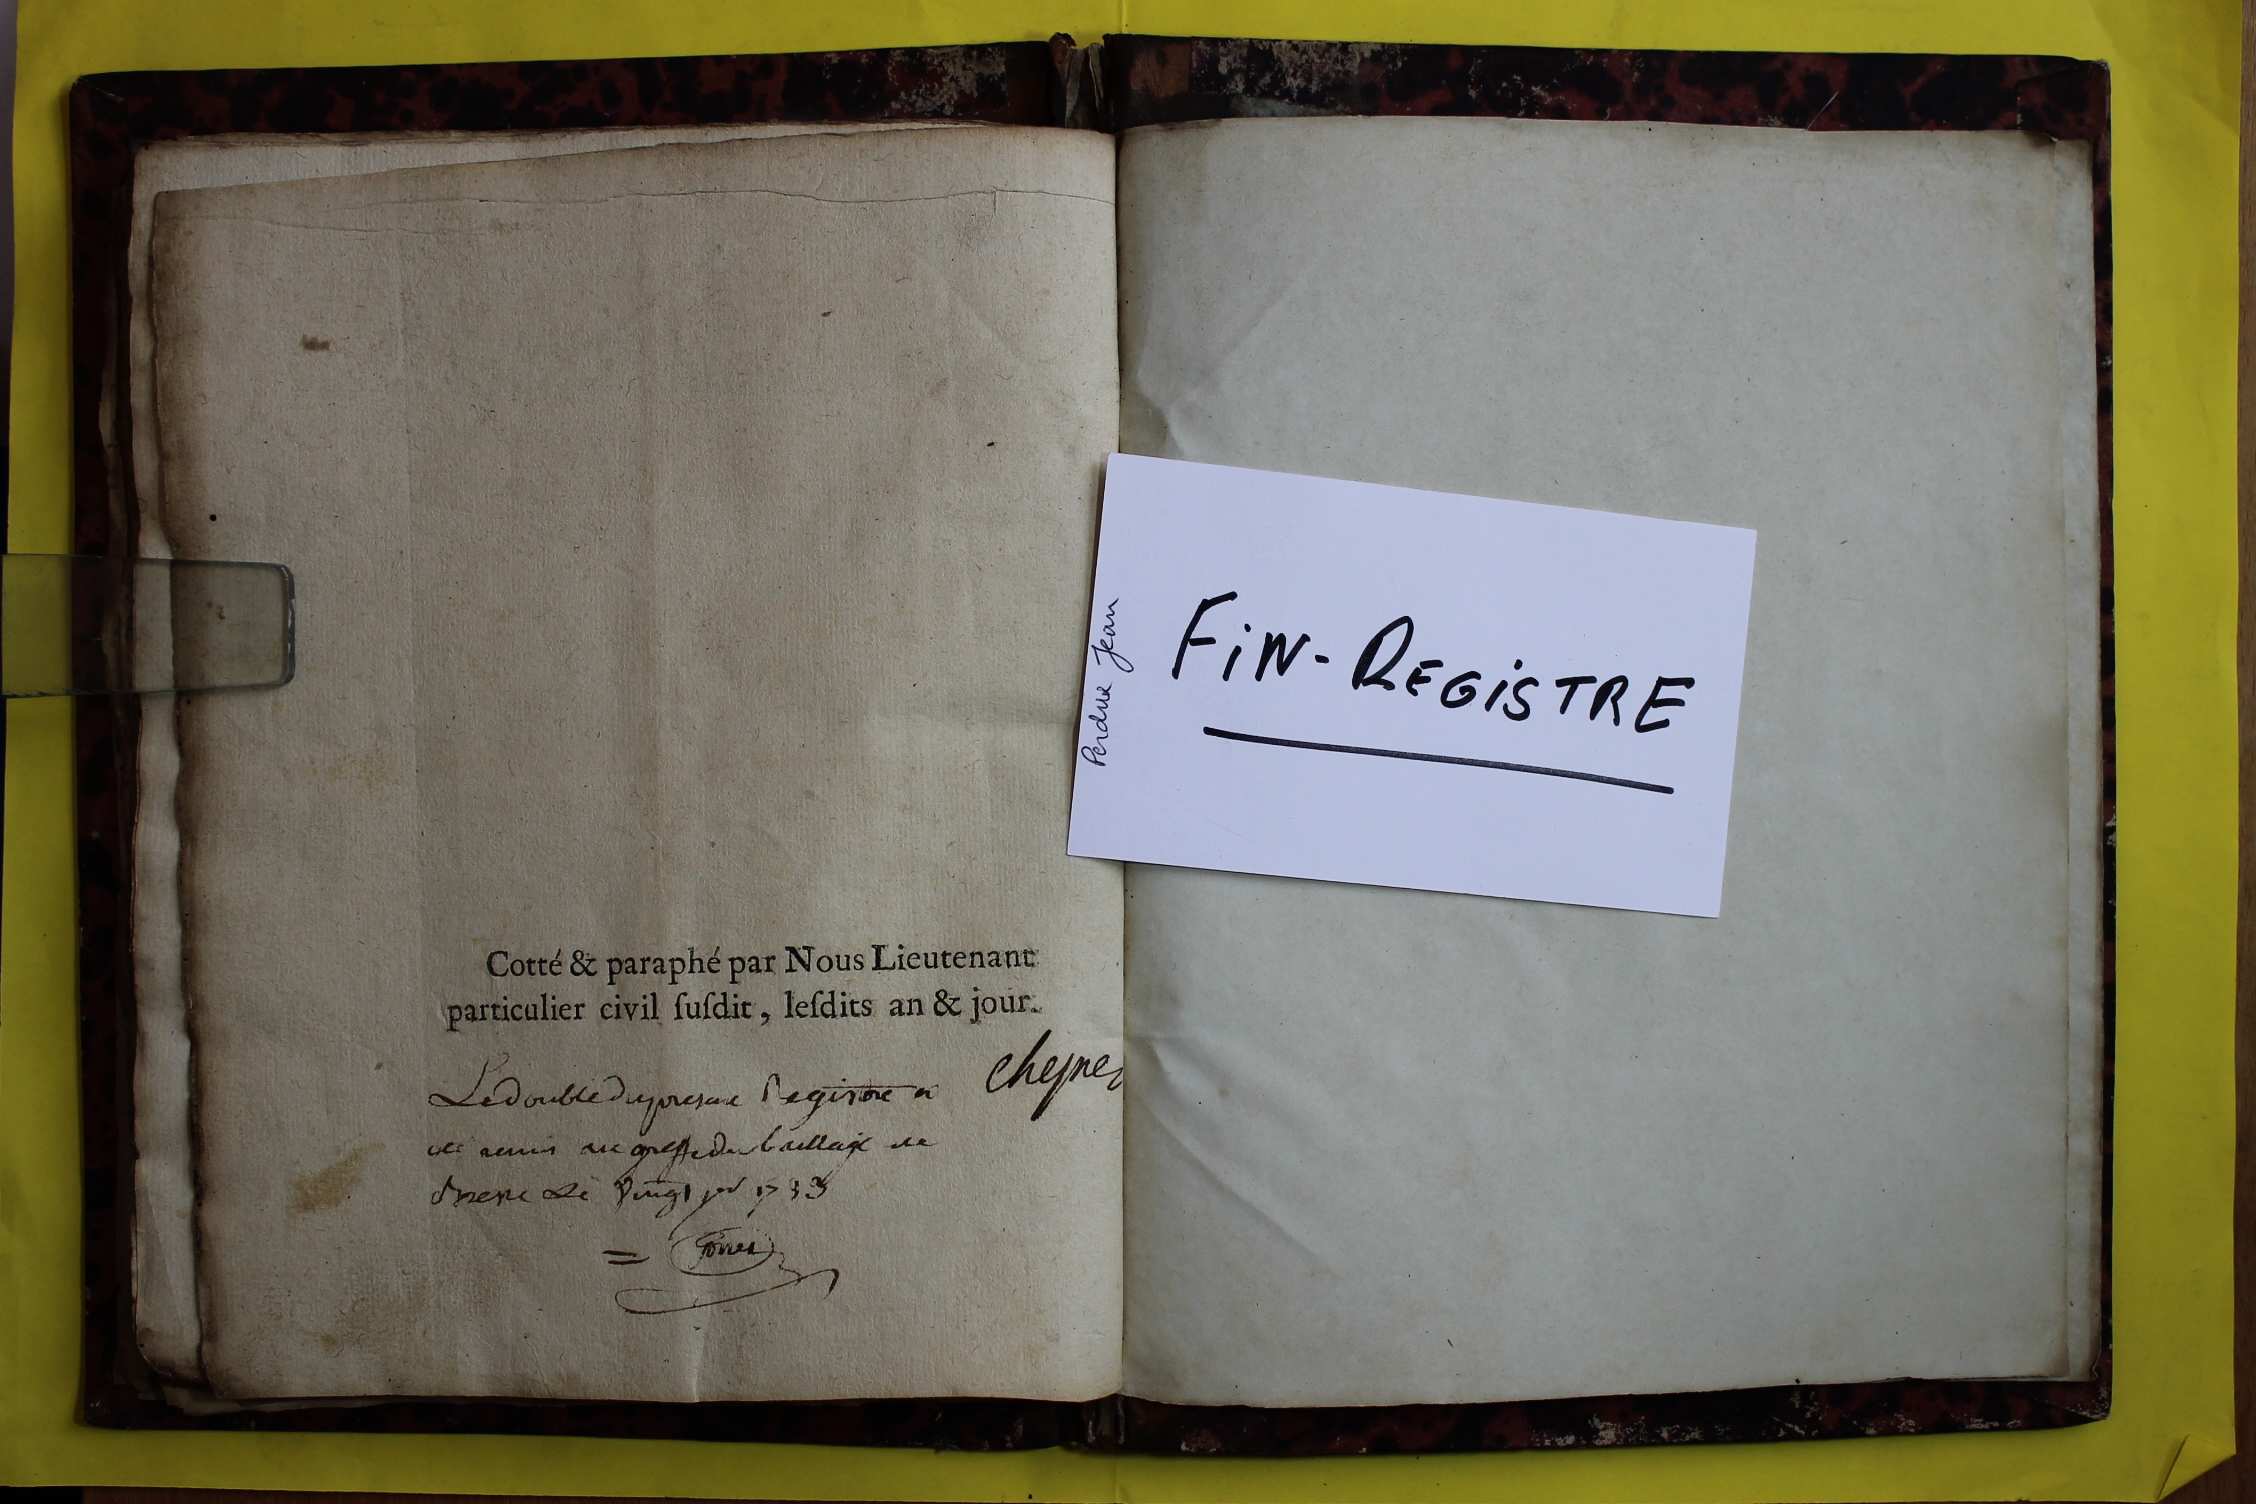 Cotté & paraphé par Nous Lieutenant
particulier civil ſuſdit, leſdits an & jour.
Le double du present Registre a
au greffe du bailliage
Le Vingt 1733
Perdue Jean
FiN-REGiSTRE